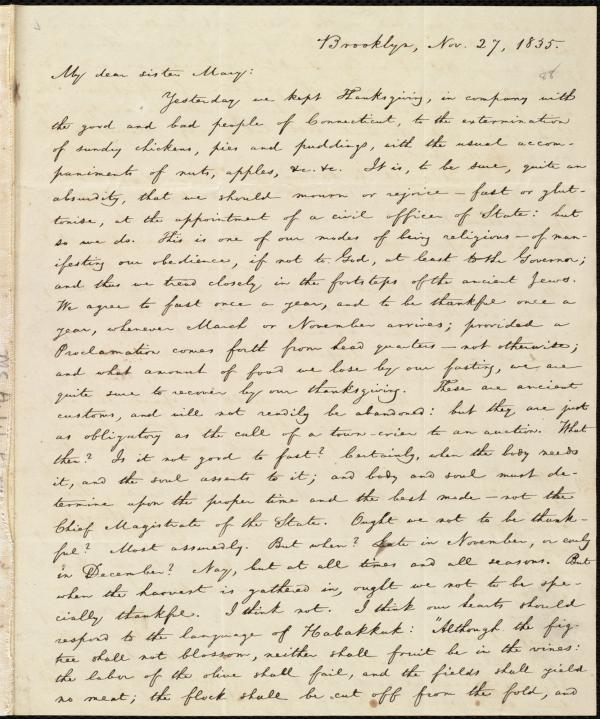 Brooklyn, Nov. 27, 1835.
My dear sister Mary:
Yesterday we kept Thanksgiving, in company with
the good and bad people of Connecticut, to the extermination
of sundry chickens, pies and puddings, with the usual accom-
paniments of nuts, apples, &c. &c. It is, to be sure, quite an
absurdity, that we should mourn or rejoice — fast or glut-
tonise, at the appointment of a civil officer of State: but
so we do. This is one of our modes of being religious — of man-
ifesting our obedience, if not to God, at least to the Governor;
and thus we tread closely in the footsteps of the ancient Jews.
We agree to fast once a year, and to be thankful once a
year, whenever March or November arrives; provided a
Proclamation comes forth from head quarters — not otherwise;
and what amount of food we lose by our fasting, we are
quite sure to recover by our thanksgiving. These are ancient
customs, and will not readily be abandoned: but they are just
as obligatory as the call of a town-crier to an auction. What
then? Is it not good to fast? Certainly, when the body needs
it, and the soul assents to it; and body and soul must de-
termine upon the proper time and the best mode — not the
Chief Magistrate of the State. Ought we not to be thank-
ful? Most assuredly. But when? Late in November, or early
in December? Nay, but at all times and all seasons. But
when the harvest is gathered in, ought we not to be spe-
cially thankful. I think not. I think our hearts should
respond to the language of Habakkuk: "Although the fig-
tree shall not blossom, neither shall fruit be in the vines:
the labor of the olive shall fail, and the fields shall yield
no meat; the flock shall be cut off from the fold, and